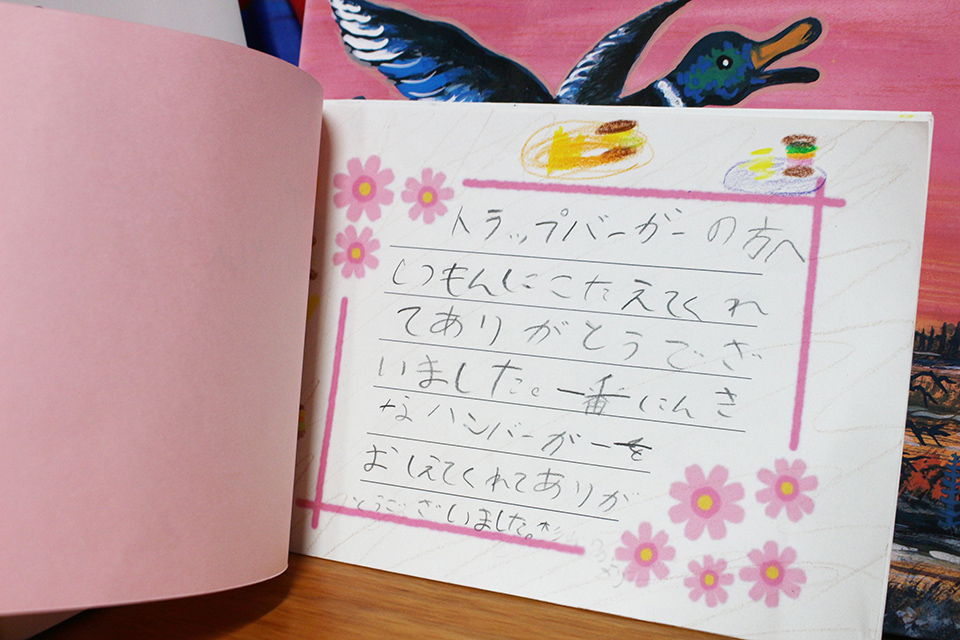 トラップバーガーの方へ
しつもんにこたえてくれ
てありがとうござ
いました。一番にんき
なハンバーガーを
おしえてくれてありが
とうございました。